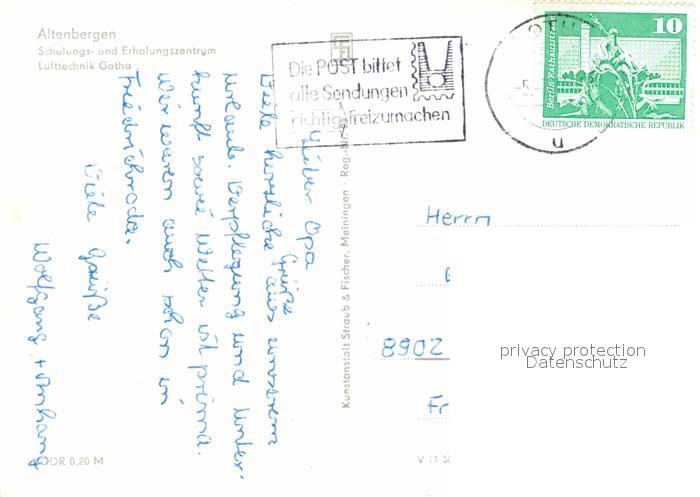 Altenbergen
Schulungs- und Erholungszentrum
Lufttechnik Gotha
Die POST bittet
alle Sendungen
richtig freizumachen
10
Berlin Rathausstraße
DEUTSCHE DEMOKRATISCHE REPUBLIK
u
Lieber Opa
Viele herzliche Grüße aus unserem
Urlaub. Verpflegung und Unter-
kunft sowie Wetter ist prima.
Wir waren auch schon in
Friedrichroda.
Viele Grüße
Wolfgang + Anhang
Kunstanstalt Straub & Fischer, Meiningen
Herrn
8902
Fr
privacy protection
Datenschutz
DDR 0,20 M
V 11 50